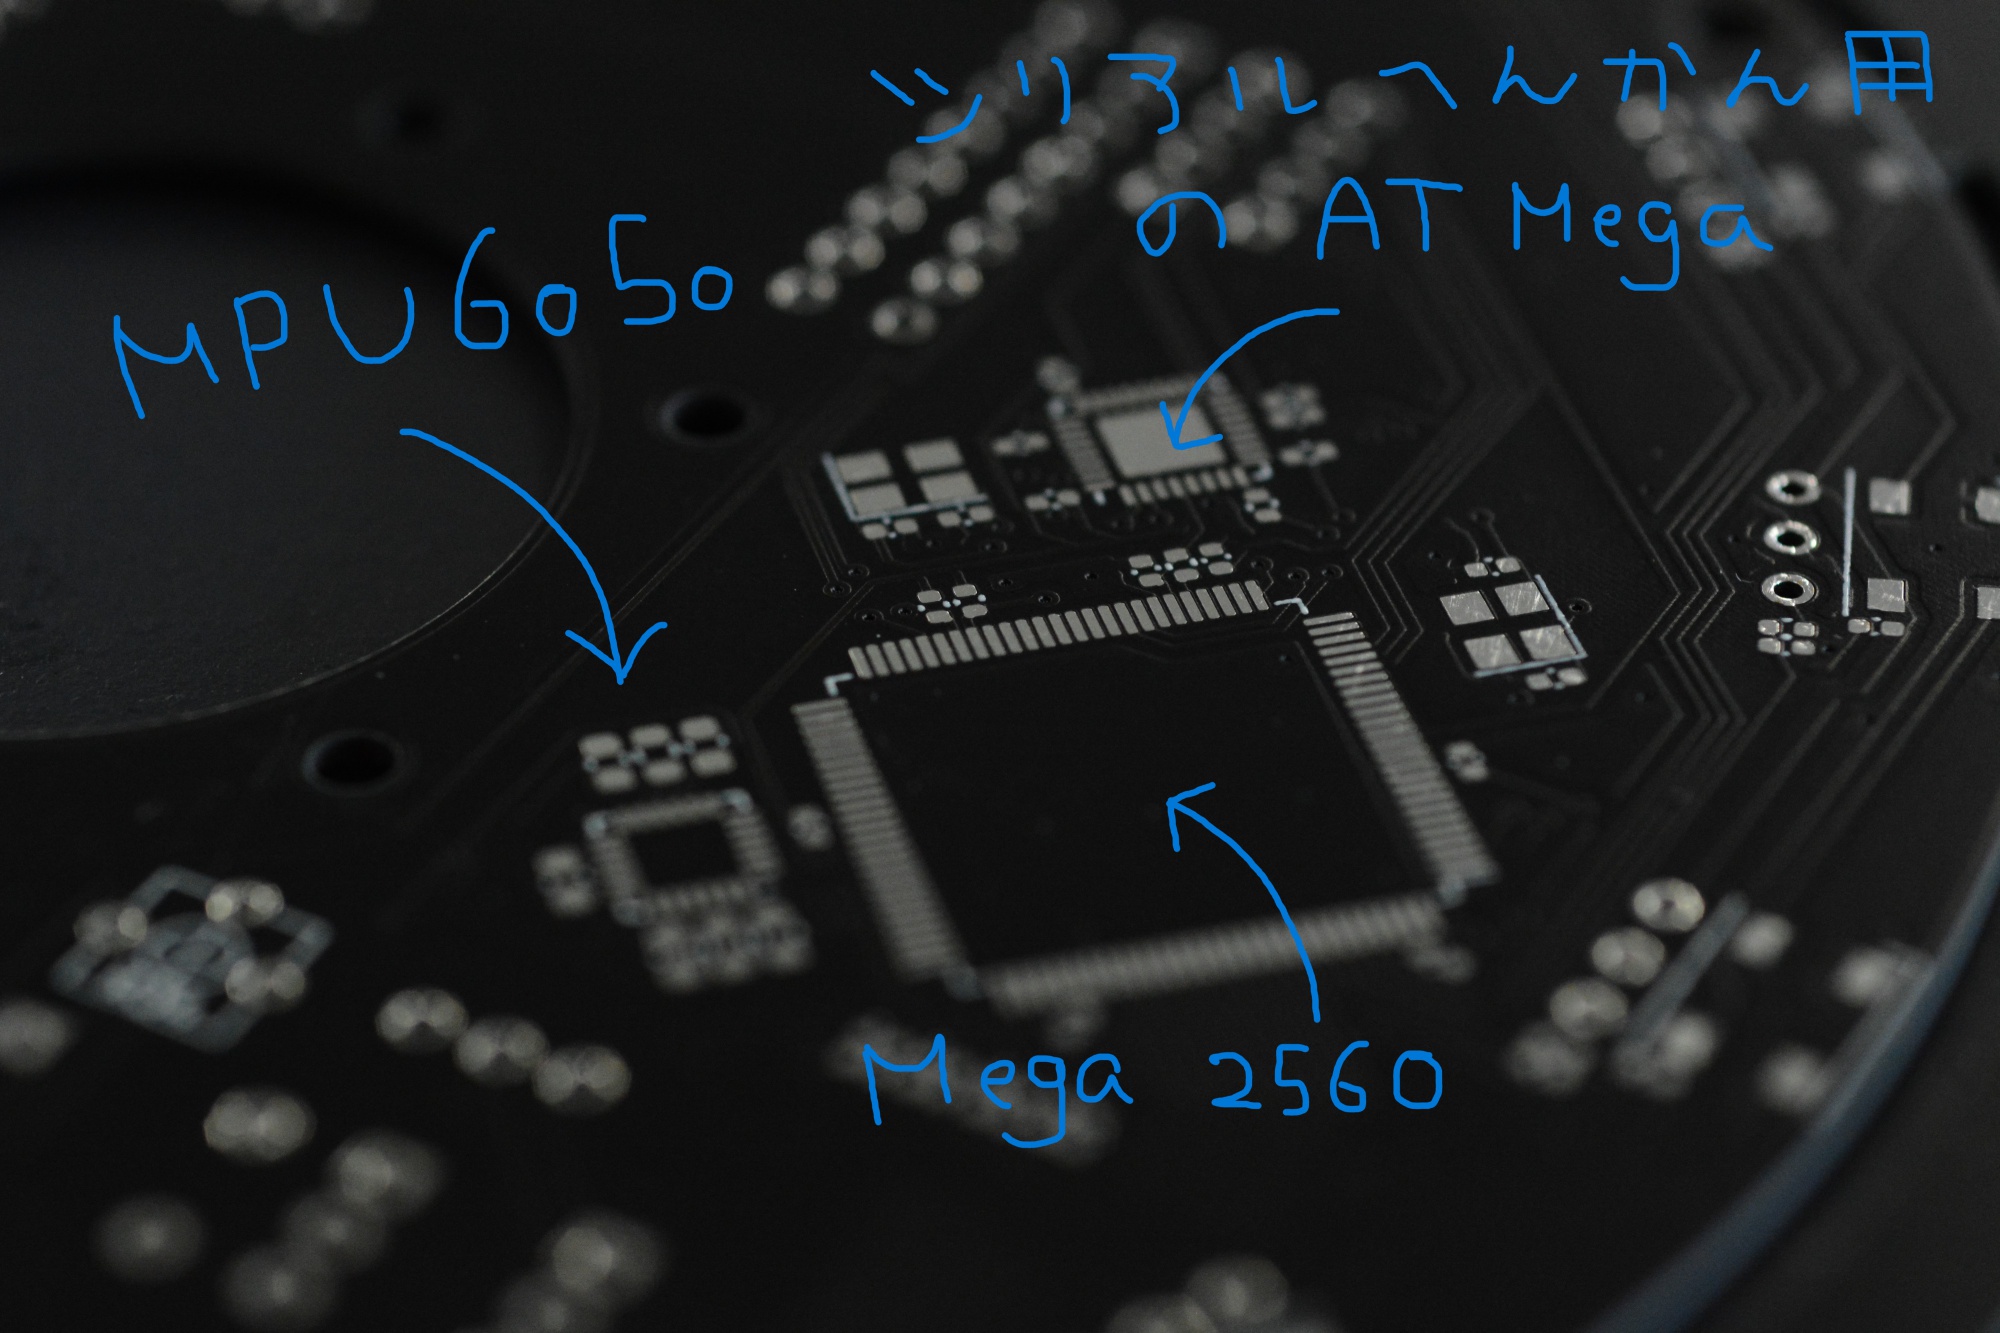 シリアルへんかん用
のATMega
MPU6050
Mega 2560